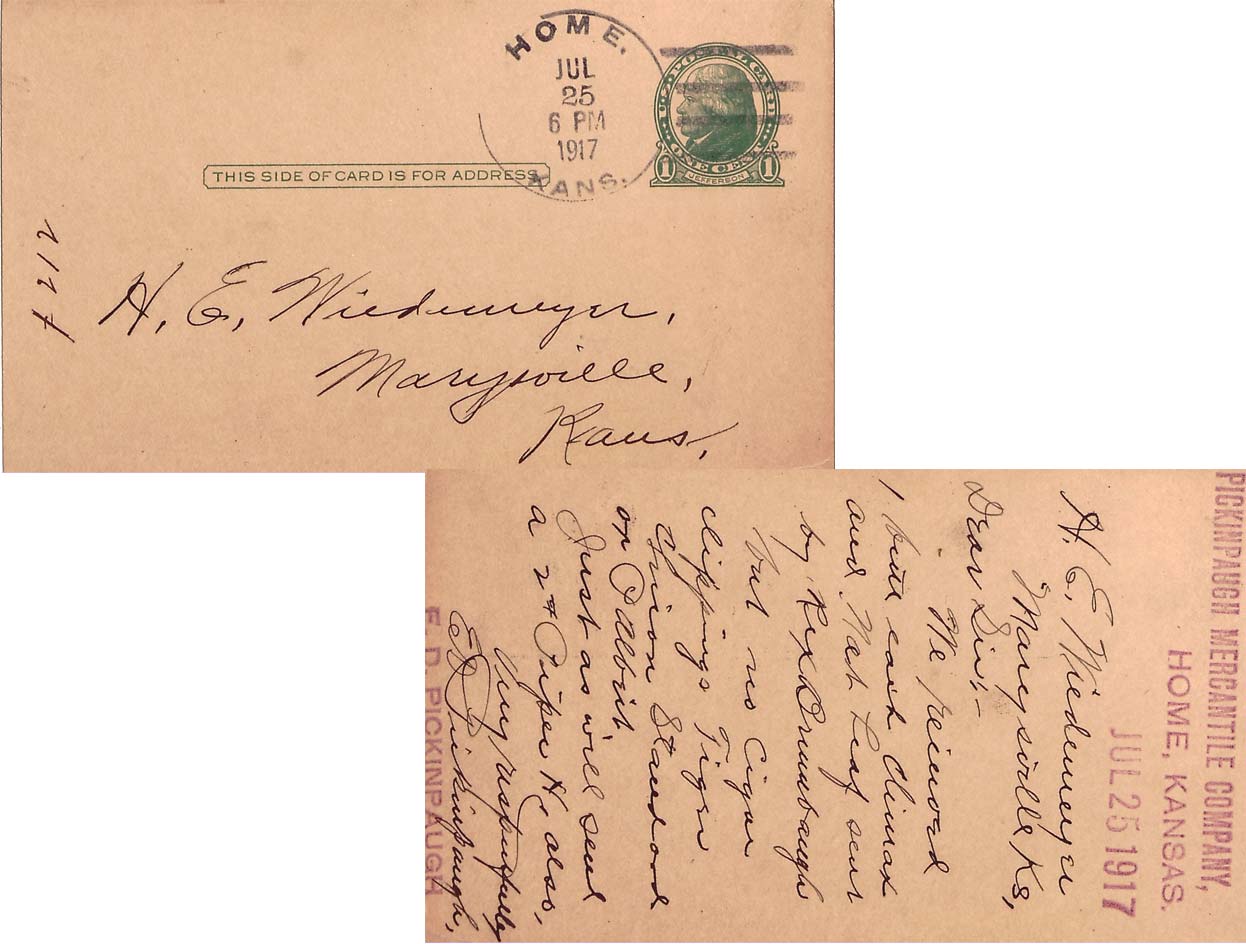 HOME,
JUL
25
6 PM
1917
KANS.
U.S. POSTAL CARD
ONE CENT
1 JEFFERSON 1
THIS SIDE OF CARD IS FOR ADDRESS
H. E. Wiedemeyer,
Marysville,
Kans,
PICKINPAUGH MERCANTILE COMPANY,
HOME, KANSAS.
JUL 25 1917
H. E. Wiedemeyer
Marysville Ks,
Dear Sir:-
We reieved
1 butt each Climax
and Nat Leaf sent
by Rex Drumbaugh
but no Cigar
clippings Tiger
Union Standard
or Dalbit
Just as well send
a 2# Piper H also,
Very respectfully
E D Pickinpaugh,
E. D. PICKINPAUGH